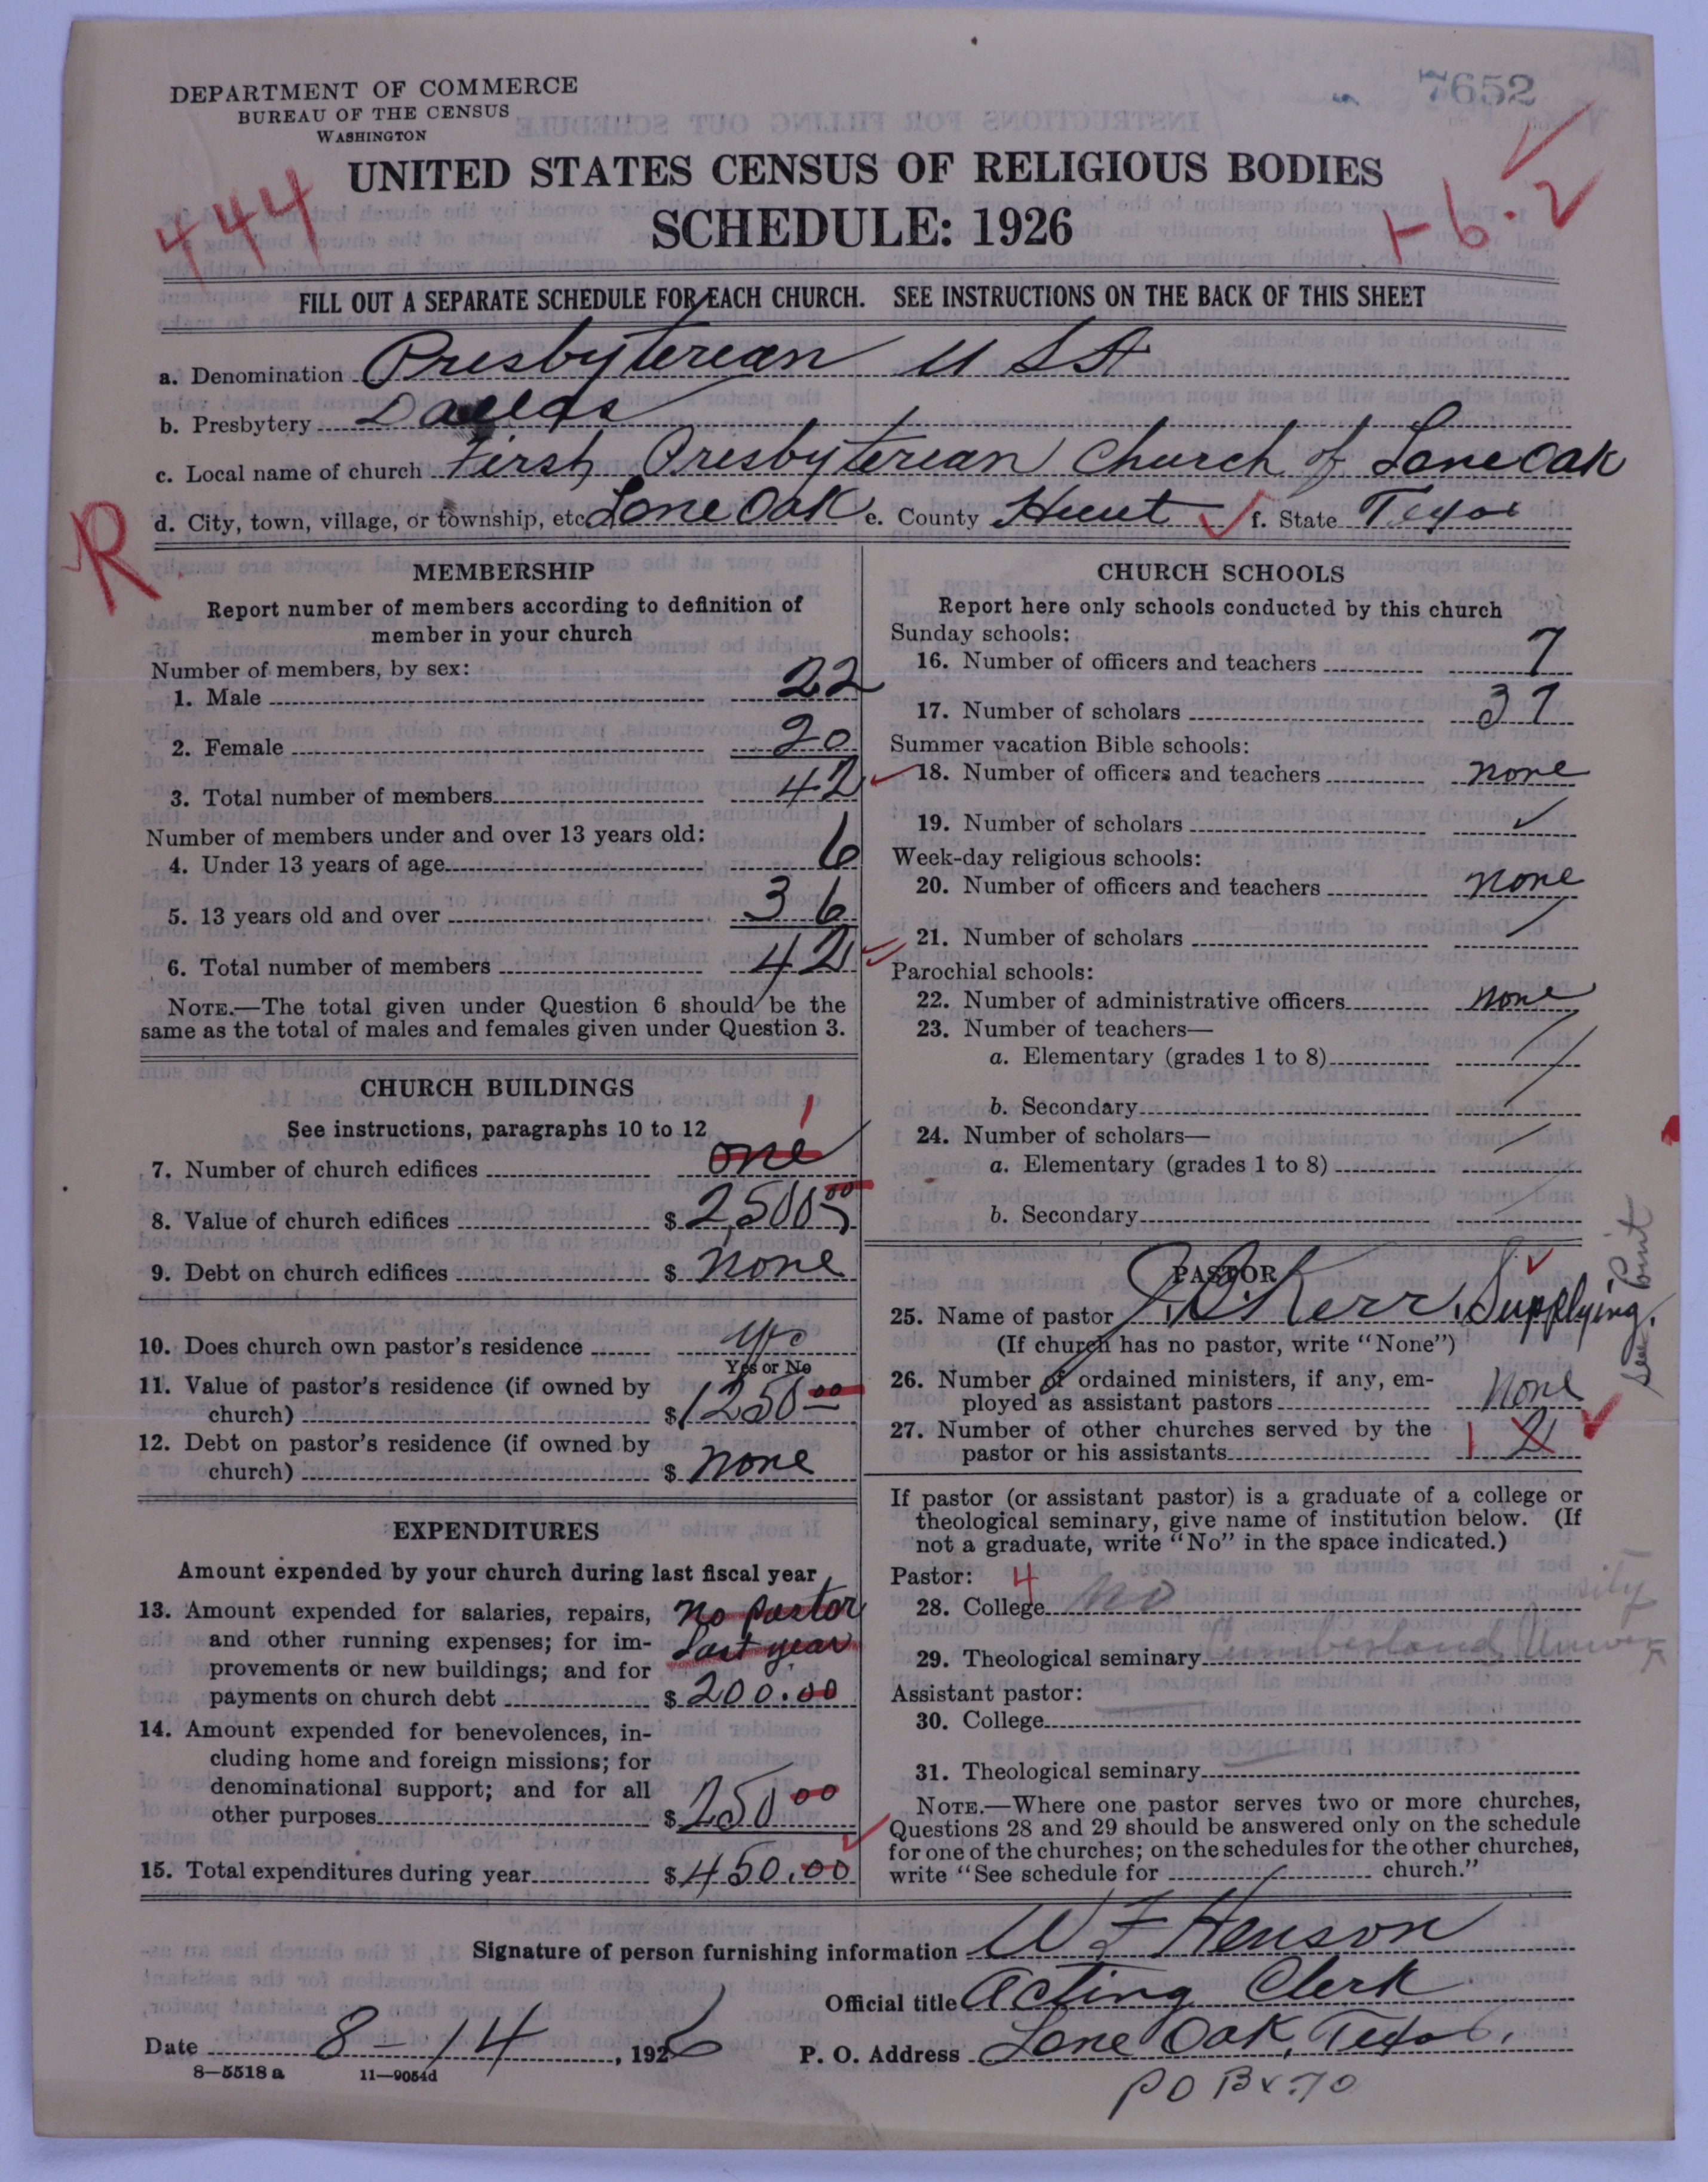 7652
DEPARTMENT OF COMMERCE
BUREAU OF THE CENSUS
WASHINGTON
UNITED STATES CENSUS OF RELIGIOUS BODIES
SCHEDULE: 1926
444
1-6.2
FILL OUT A SEPARATE SCHEDULE FOR EACH CHURCH. SEE INSTRUCTIONS ON THE BACK OF THIS SHEET
a. Denomination Presbyterian U S A
b. Presbytery Dallas
c. Local name of church First Presbyterian Church of Lone Oak
d. City, town, village, or township, etc. Lone Oak e. County Hunt f. State Texas
R
MEMBERSHIP
Report number of members according to definition of
member in your church
Number of members, by sex:
1. Male 22
2. Female 20
3. Total number of members 42
Number of members under and over 13 years old:
4. Under 13 years of age 6
5. 13 years old and over 36
6. Total number of members 42
NOTE.—The total given under Question 6 should be the
same as the total of males and females given under Question 3.
CHURCH BUILDINGS
See instructions, paragraphs 10 to 12
1
7. Number of church edifices one
8. Value of church edifices $ 2,500 00
9. Debt on church edifices $ none
10. Does church own pastor's residence yes
Yes or No
11. Value of pastor's residence (if owned by
church) $ 1250 00
12. Debt on pastor's residence (if owned by
church) $ none
EXPENDITURES
Amount expended by your church during last fiscal year
13. Amount expended for salaries, repairs, no pastor
and other running expenses; for im- last year
provements or new buildings; and for
payments on church debt $ 200.00
14. Amount expended for benevolences, in-
cluding home and foreign missions; for
denominational support; and for all
other purposes $ 250 00
15. Total expenditures during year $ 450.00
CHURCH SCHOOLS
Report here only schools conducted by this church
Sunday schools:
16. Number of officers and teachers 7
17. Number of scholars 37
Summer vacation Bible schools:
18. Number of officers and teachers none
19. Number of scholars
Week-day religious schools:
20. Number of officers and teachers none
21. Number of scholars
Parochial schools:
22. Number of administrative officers none
23. Number of teachers—
a. Elementary (grades 1 to 8)
b. Secondary
24. Number of scholars—
a. Elementary (grades 1 to 8)
b. Secondary
PASTOR
25. Name of pastor Kerr. Supplying.
(If church has no pastor, write "None")
See Point
26. Number of ordained ministers, if any, em-
ployed as assistant pastors none
27. Number of other churches served by the
pastor or his assistants 1 2
If pastor (or assistant pastor) is a graduate of a college or
theological seminary, give name of institution below. (If
not a graduate, write "No" in the space indicated.)
Pastor: 4
28. College no
29. Theological seminary Cumberland University
Assistant pastor:
30. College
31. Theological seminary
NOTE.—Where one pastor serves two or more churches,
Questions 28 and 29 should be answered only on the schedule
for one of the churches; on the schedules for the other churches,
write "See schedule for church."
Signature of person furnishing information W F Henson
Official title Acting Clerk
Date 8-14, 1926 P. O. Address Lone Oak, Texas.
8—5518 a 11—9054d
PO Bx 70